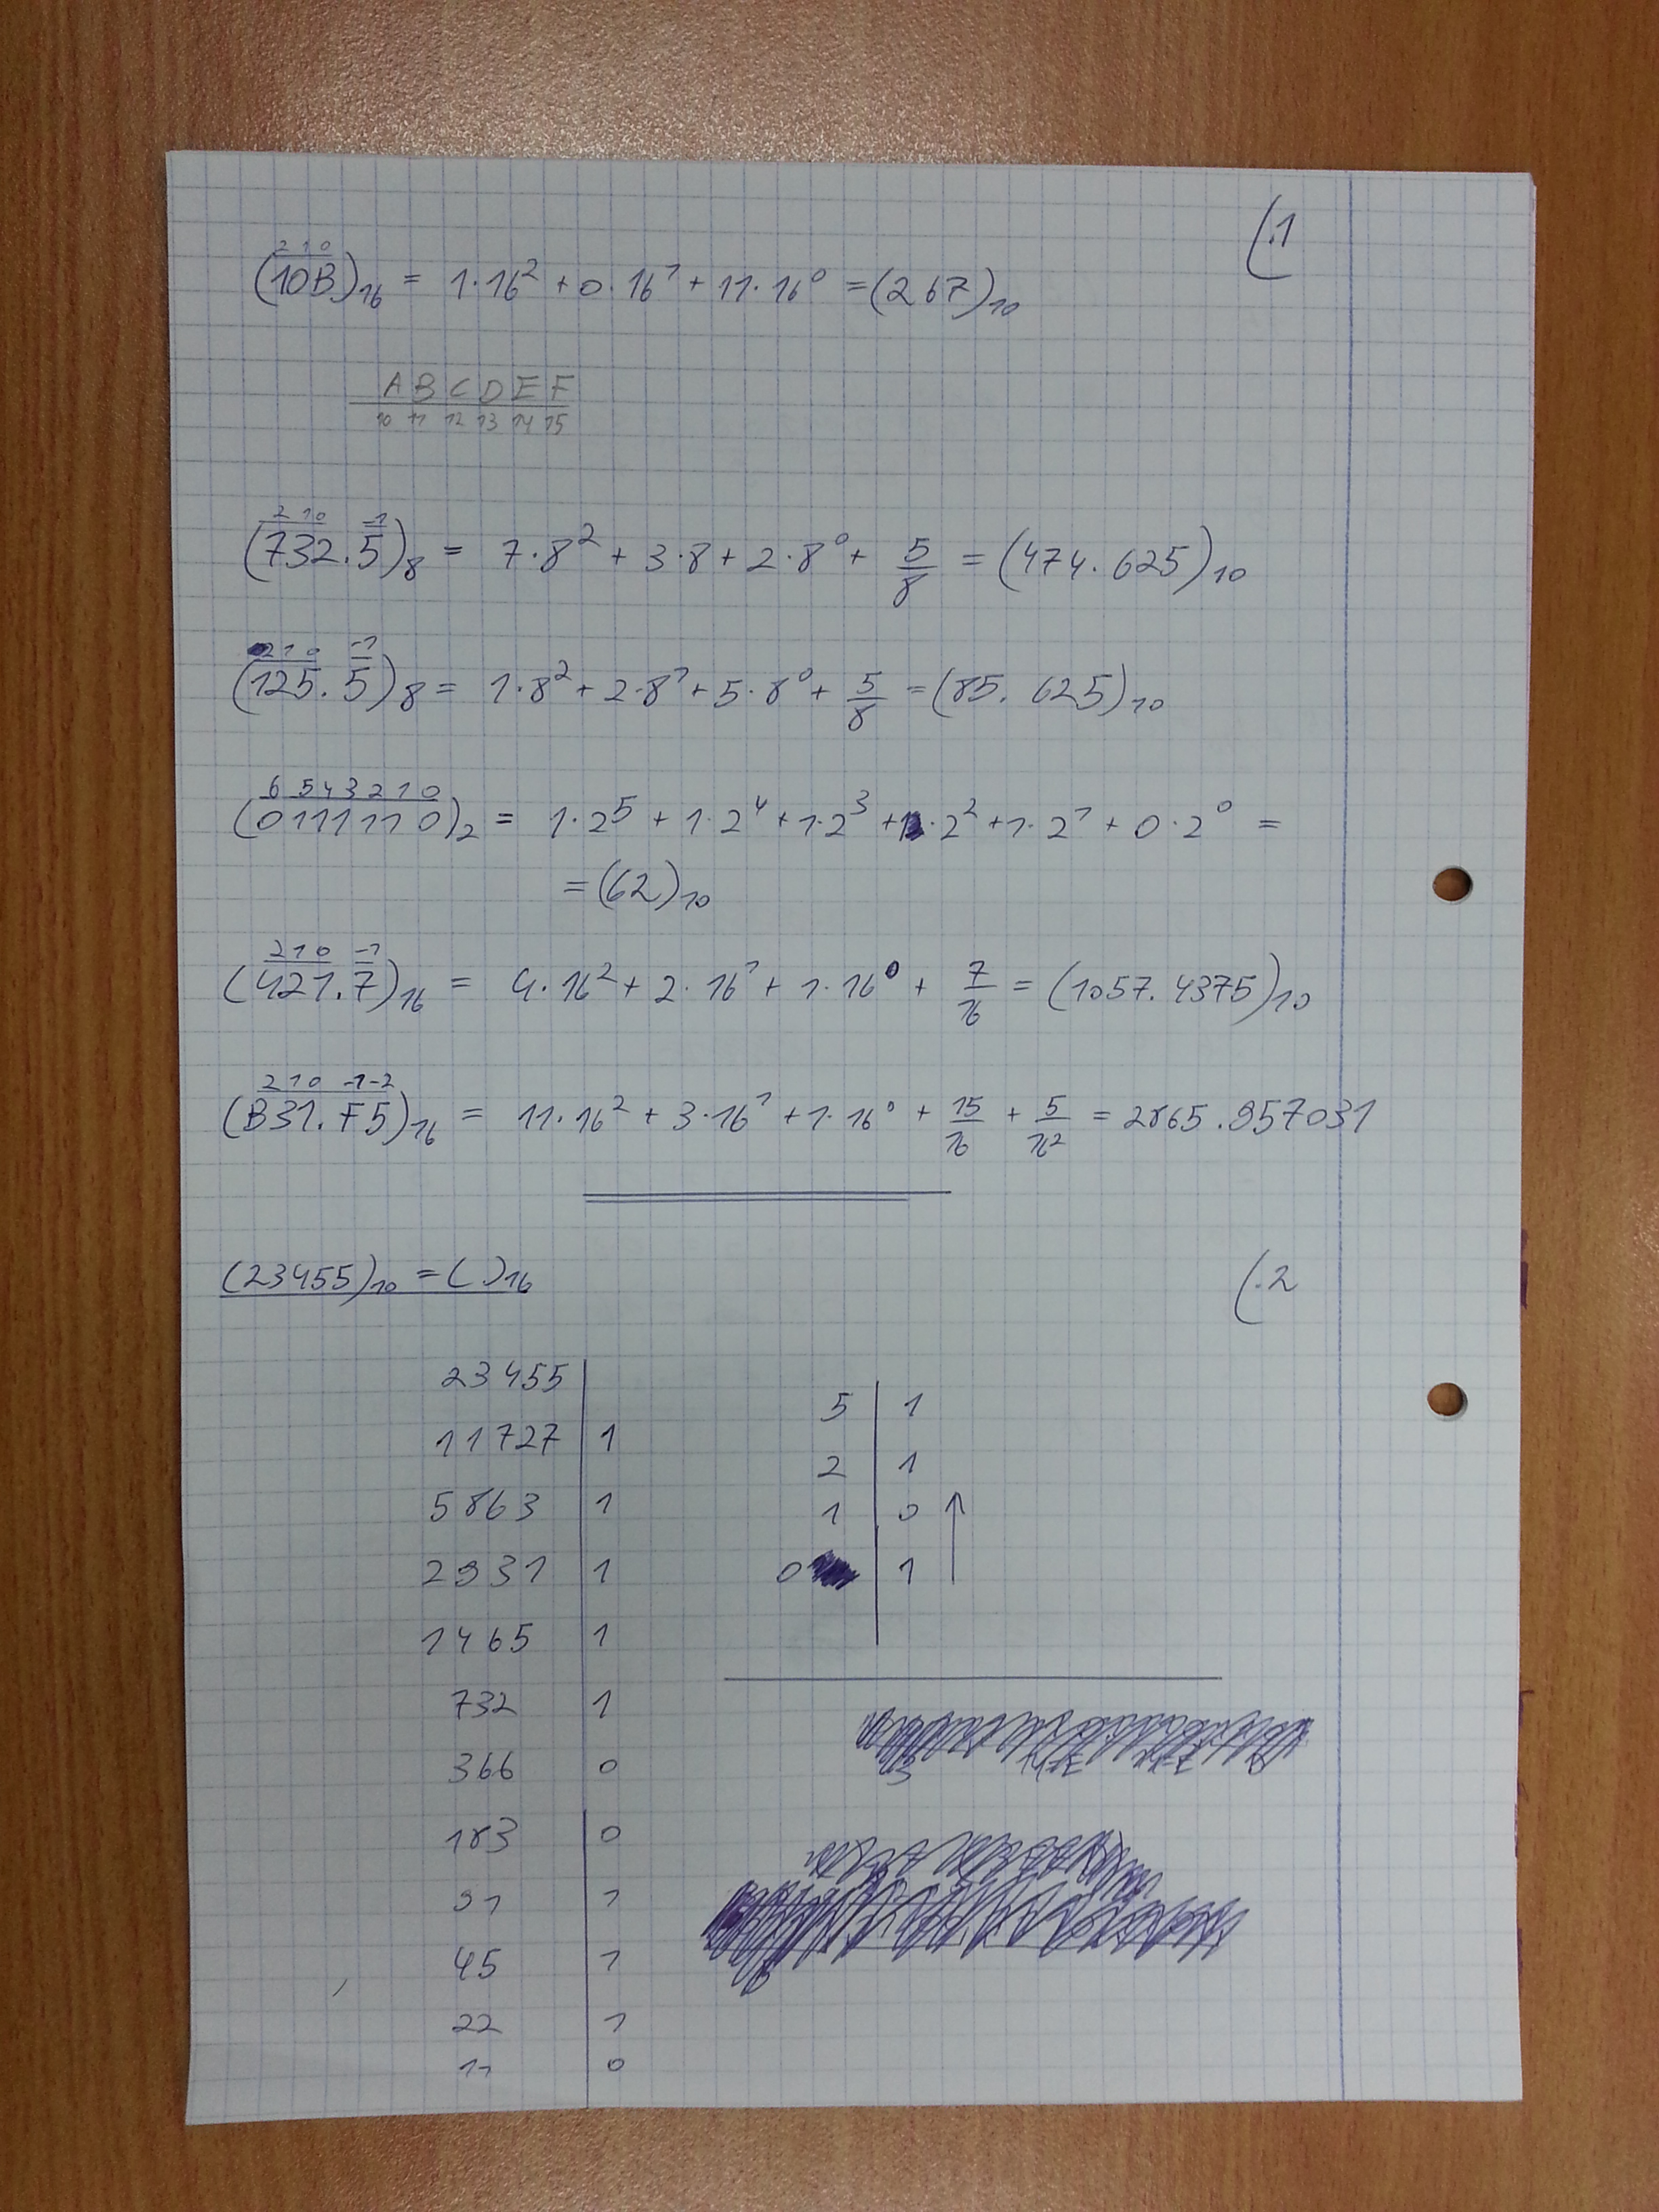 (.1
2 1 0
(10B)₁₆ = 1·16² + 0·16¹ + 11·16⁰ = (267)₁₀
A B C D E F
10 11 12 13 14 15
2 1 0 -1
(732.5)₈ = 7·8² + 3·8 + 2·8⁰ + 5/8 = (474.625)₁₀
2 1 0 -1
(125.5)₈ = 1·8² + 2·8¹ + 5·8⁰ + 5/8 = (85.625)₁₀
6 5 4 3 2 1 0
(0111110)₂ = 1·2⁵ + 1·2⁴ + 1·2³ + 1·2² + 1·2¹ + 0·2⁰ =
= (62)₁₀
2 1 0 -1
(421.7)₁₆ = 4·16² + 2·16¹ + 1·16⁰ + 7/16 = (1057.4375)₁₀
2 1 0 -1 -2
(B31.F5)₁₆ = 11·16² + 3·16¹ + 1·16⁰ + 15/16 + 5/16² = 2865.957031
(23455)₁₀ = ( )₁₆
(.2
23455
11727 1
5863 1
2931 1
1465 1
732 1
366 0
183 0
91 1
45 1
22 1
11 0
5 1
2 1
1 0
0 1